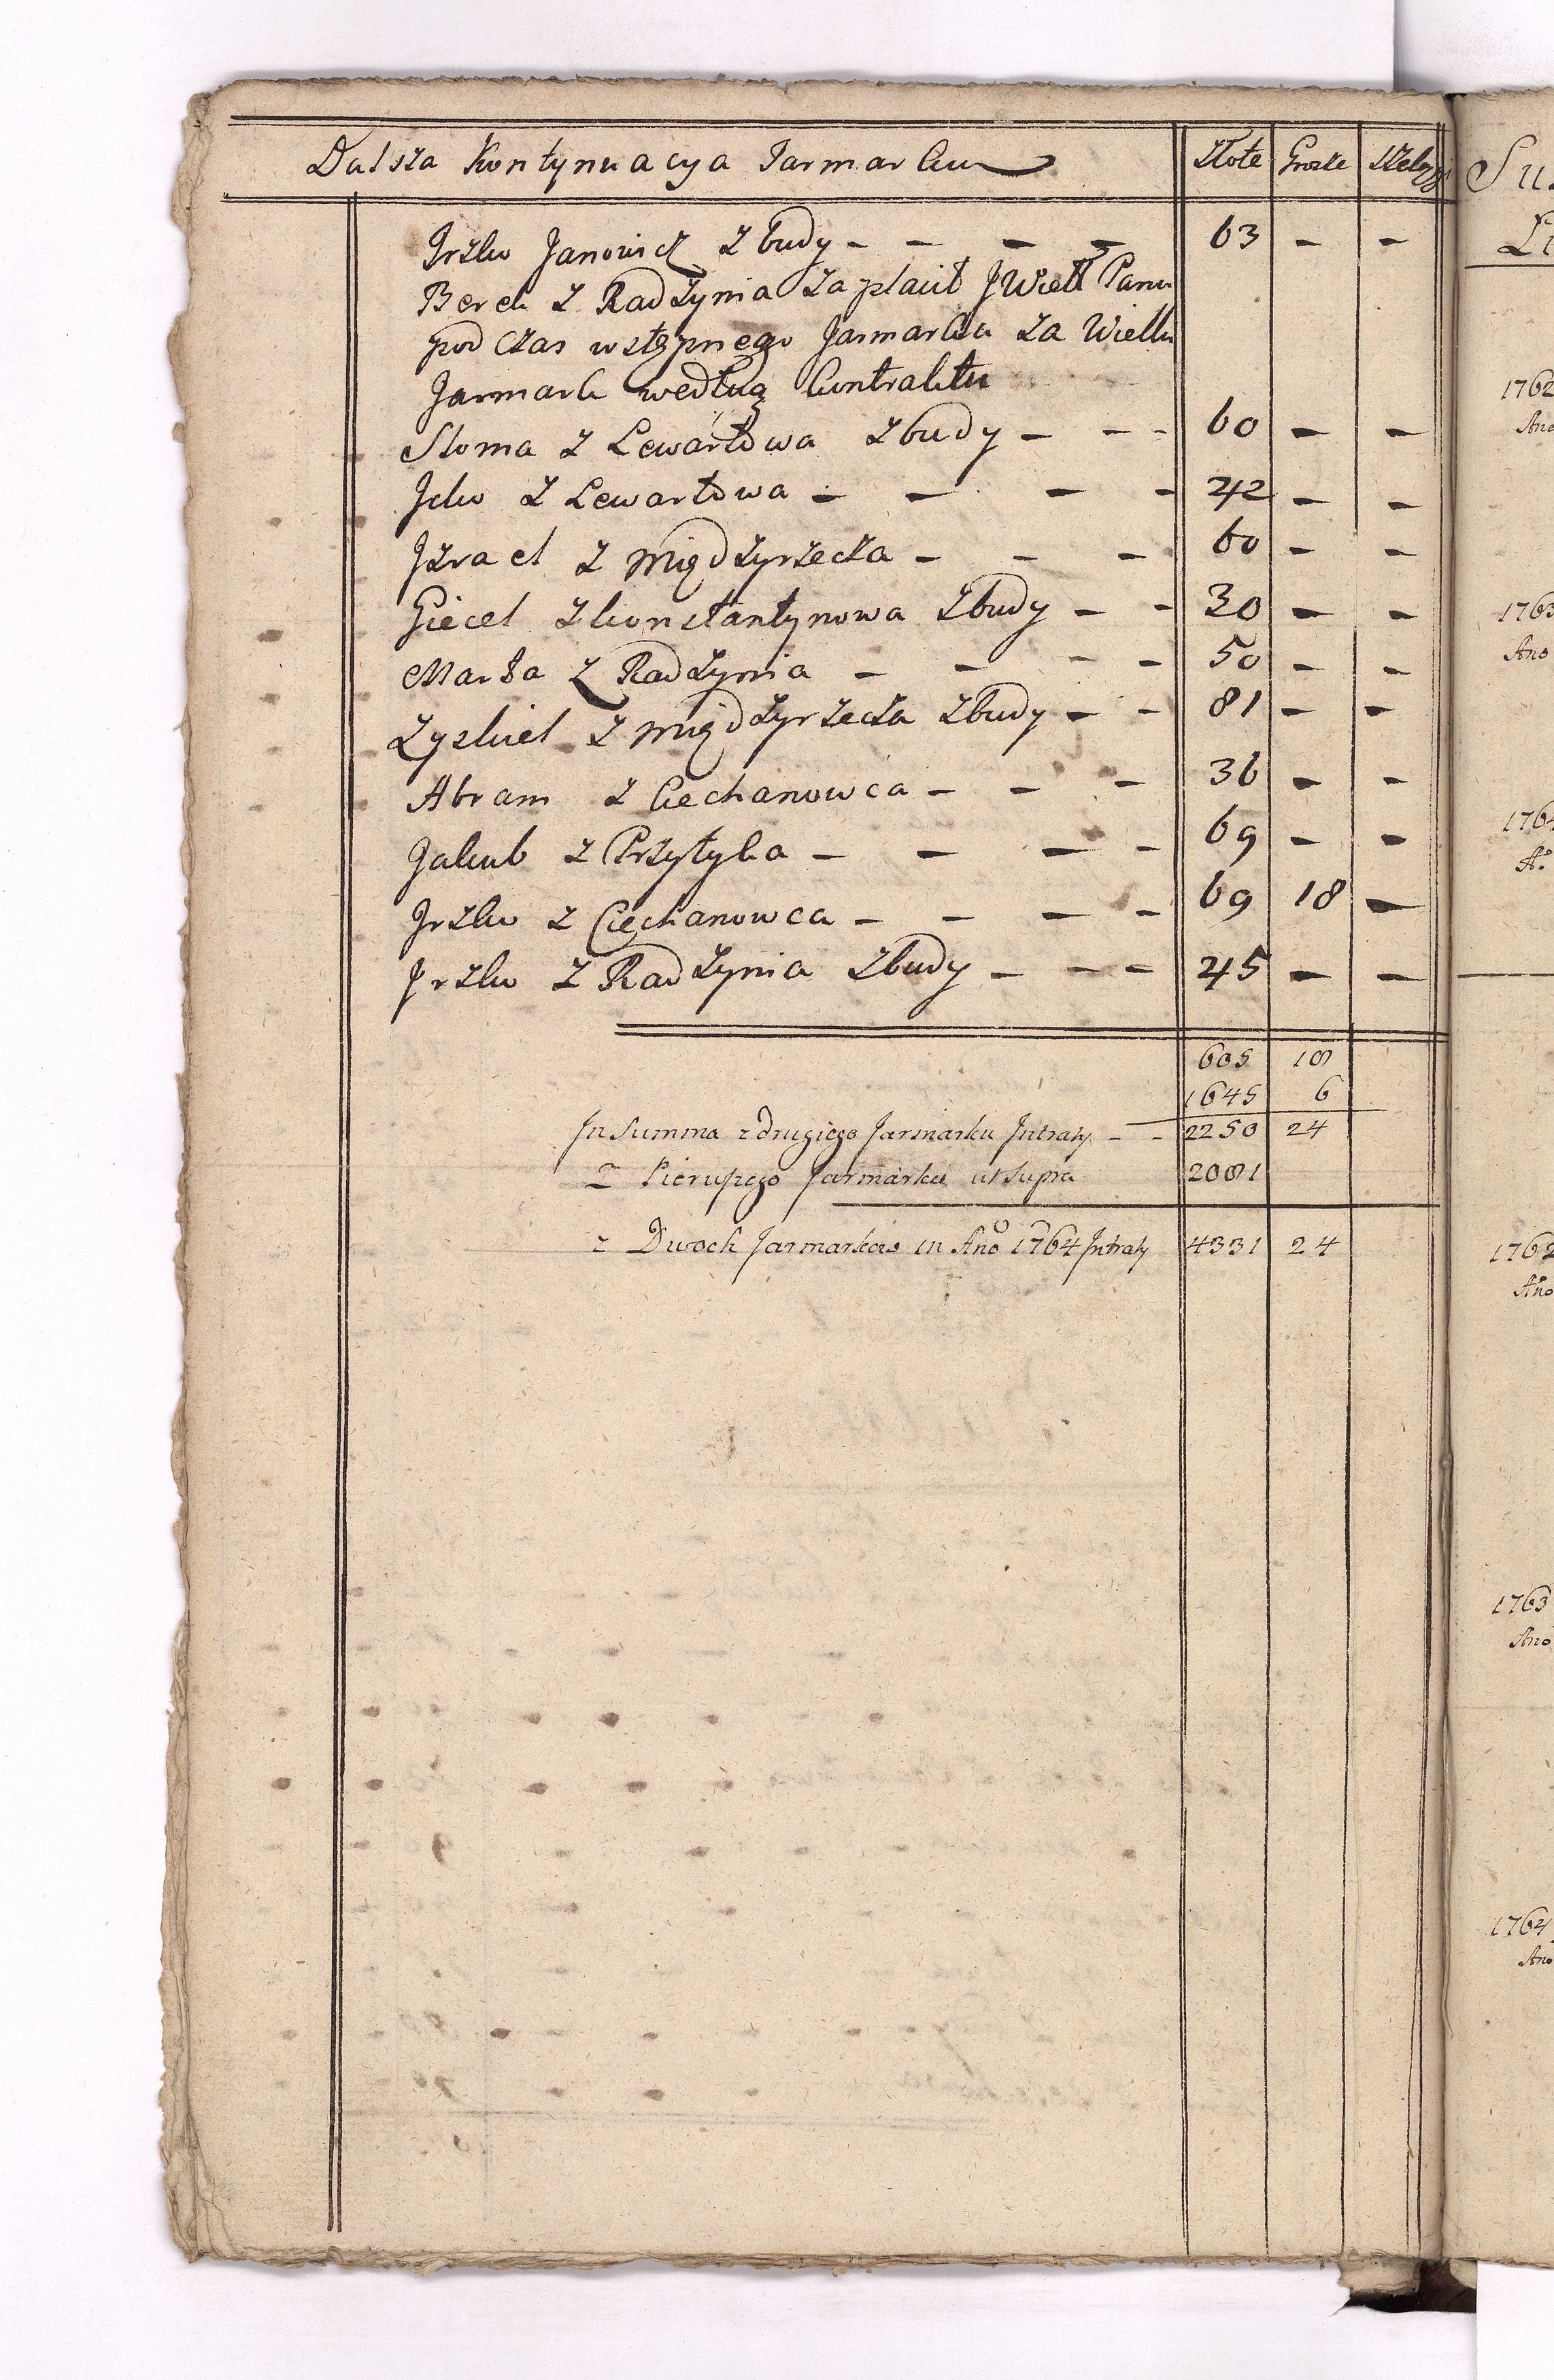 Dalsza Kontynuacya Jarmarku Złote Grosze Szelągi
Jrzko Janowicz z budy - - - - 63 - -
Berek z Radzynia zapłacił JWiell Panu
pod czas wstępnego Jarmarku za Wielki
Jarmark według kontraktu
Sloma z Lewartowa z budy - - - 60 - -
Jcko z Lewartowa - - - - 42 - -
Jzrael z Międzyrzecza - - - 60 - -
Giecel z konstantynowa z budy - - 30 - -
z Radzynia - - - - 50 - -
Zyskiel z Międzyrzecza z budy - - 81 - -
Abram z Ciechanowca - - - 36 - -
Jakub z Przytyka - - - - 69 - -
Jrzko z Ciechanowca - - - - 69 18 -
Jrzko z Radzynia z budy - - - 45 - -
605 18
1645 6
Jn Summa z drugiego Jarmarku Jntraty - - 2250 24
z Pierwszego Jarmarku ut Supra 2081
z Dwoch Jarmarkow in Ano 1764 Jntraty 4331 24
1762
Ano
1763
Ano
1764
Ao
1762
Ano
1763
Ano
1764
Ano